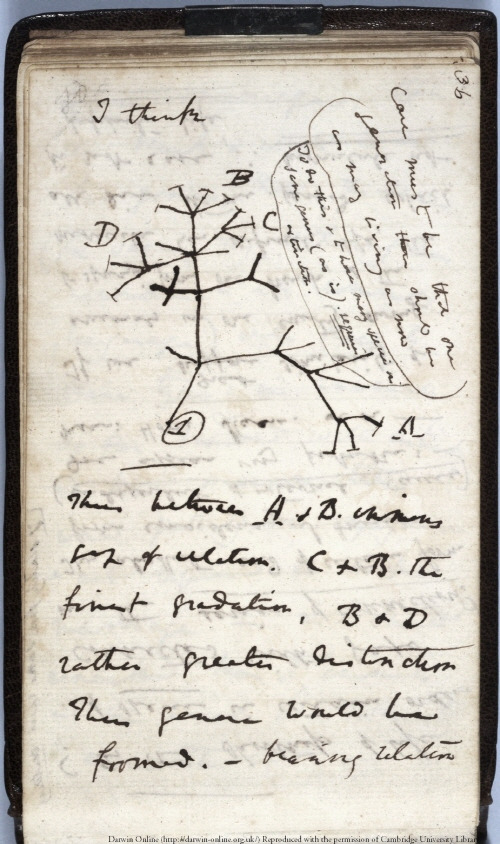 36
I think
Case must be that one
generation then should be
as many living as now
To do this & to have many species in
same genus (as is) requires
extinction.
B
C
D
A
1
Thus between A & B. immens
gap of relation. C & B. the
finest gradation, B & D
rather greater distinction
Thus genera would be
formed. — bearing relation
Darwin Online (http://darwin-online.org.uk/) Reproduced with the permission of Cambridge University Librar